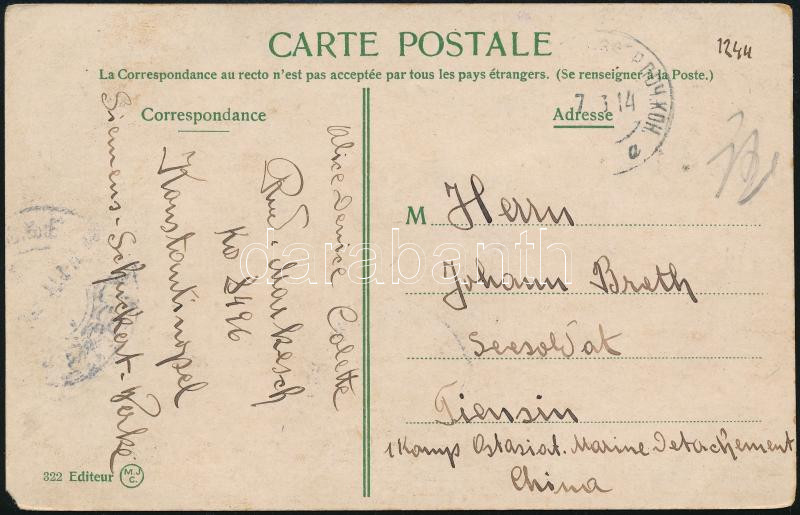 CARTE POSTALE
La Correspondance au recto n'est pas acceptée par tous les pays étrangers. (Se renseigner à la Poste.)
Correspondance
Alice Denice Colette
Rue. Markesch
No 8496
Konstantinopel
Siemens-Schuckert-Werke
322 Editeur M.J.C.
1244
7 3 14
Adresse
M Herrn
Johann Broth
Seesoldat
Tiensin
1 Komp Ostasiat. Marine Detachement
China
darabanth